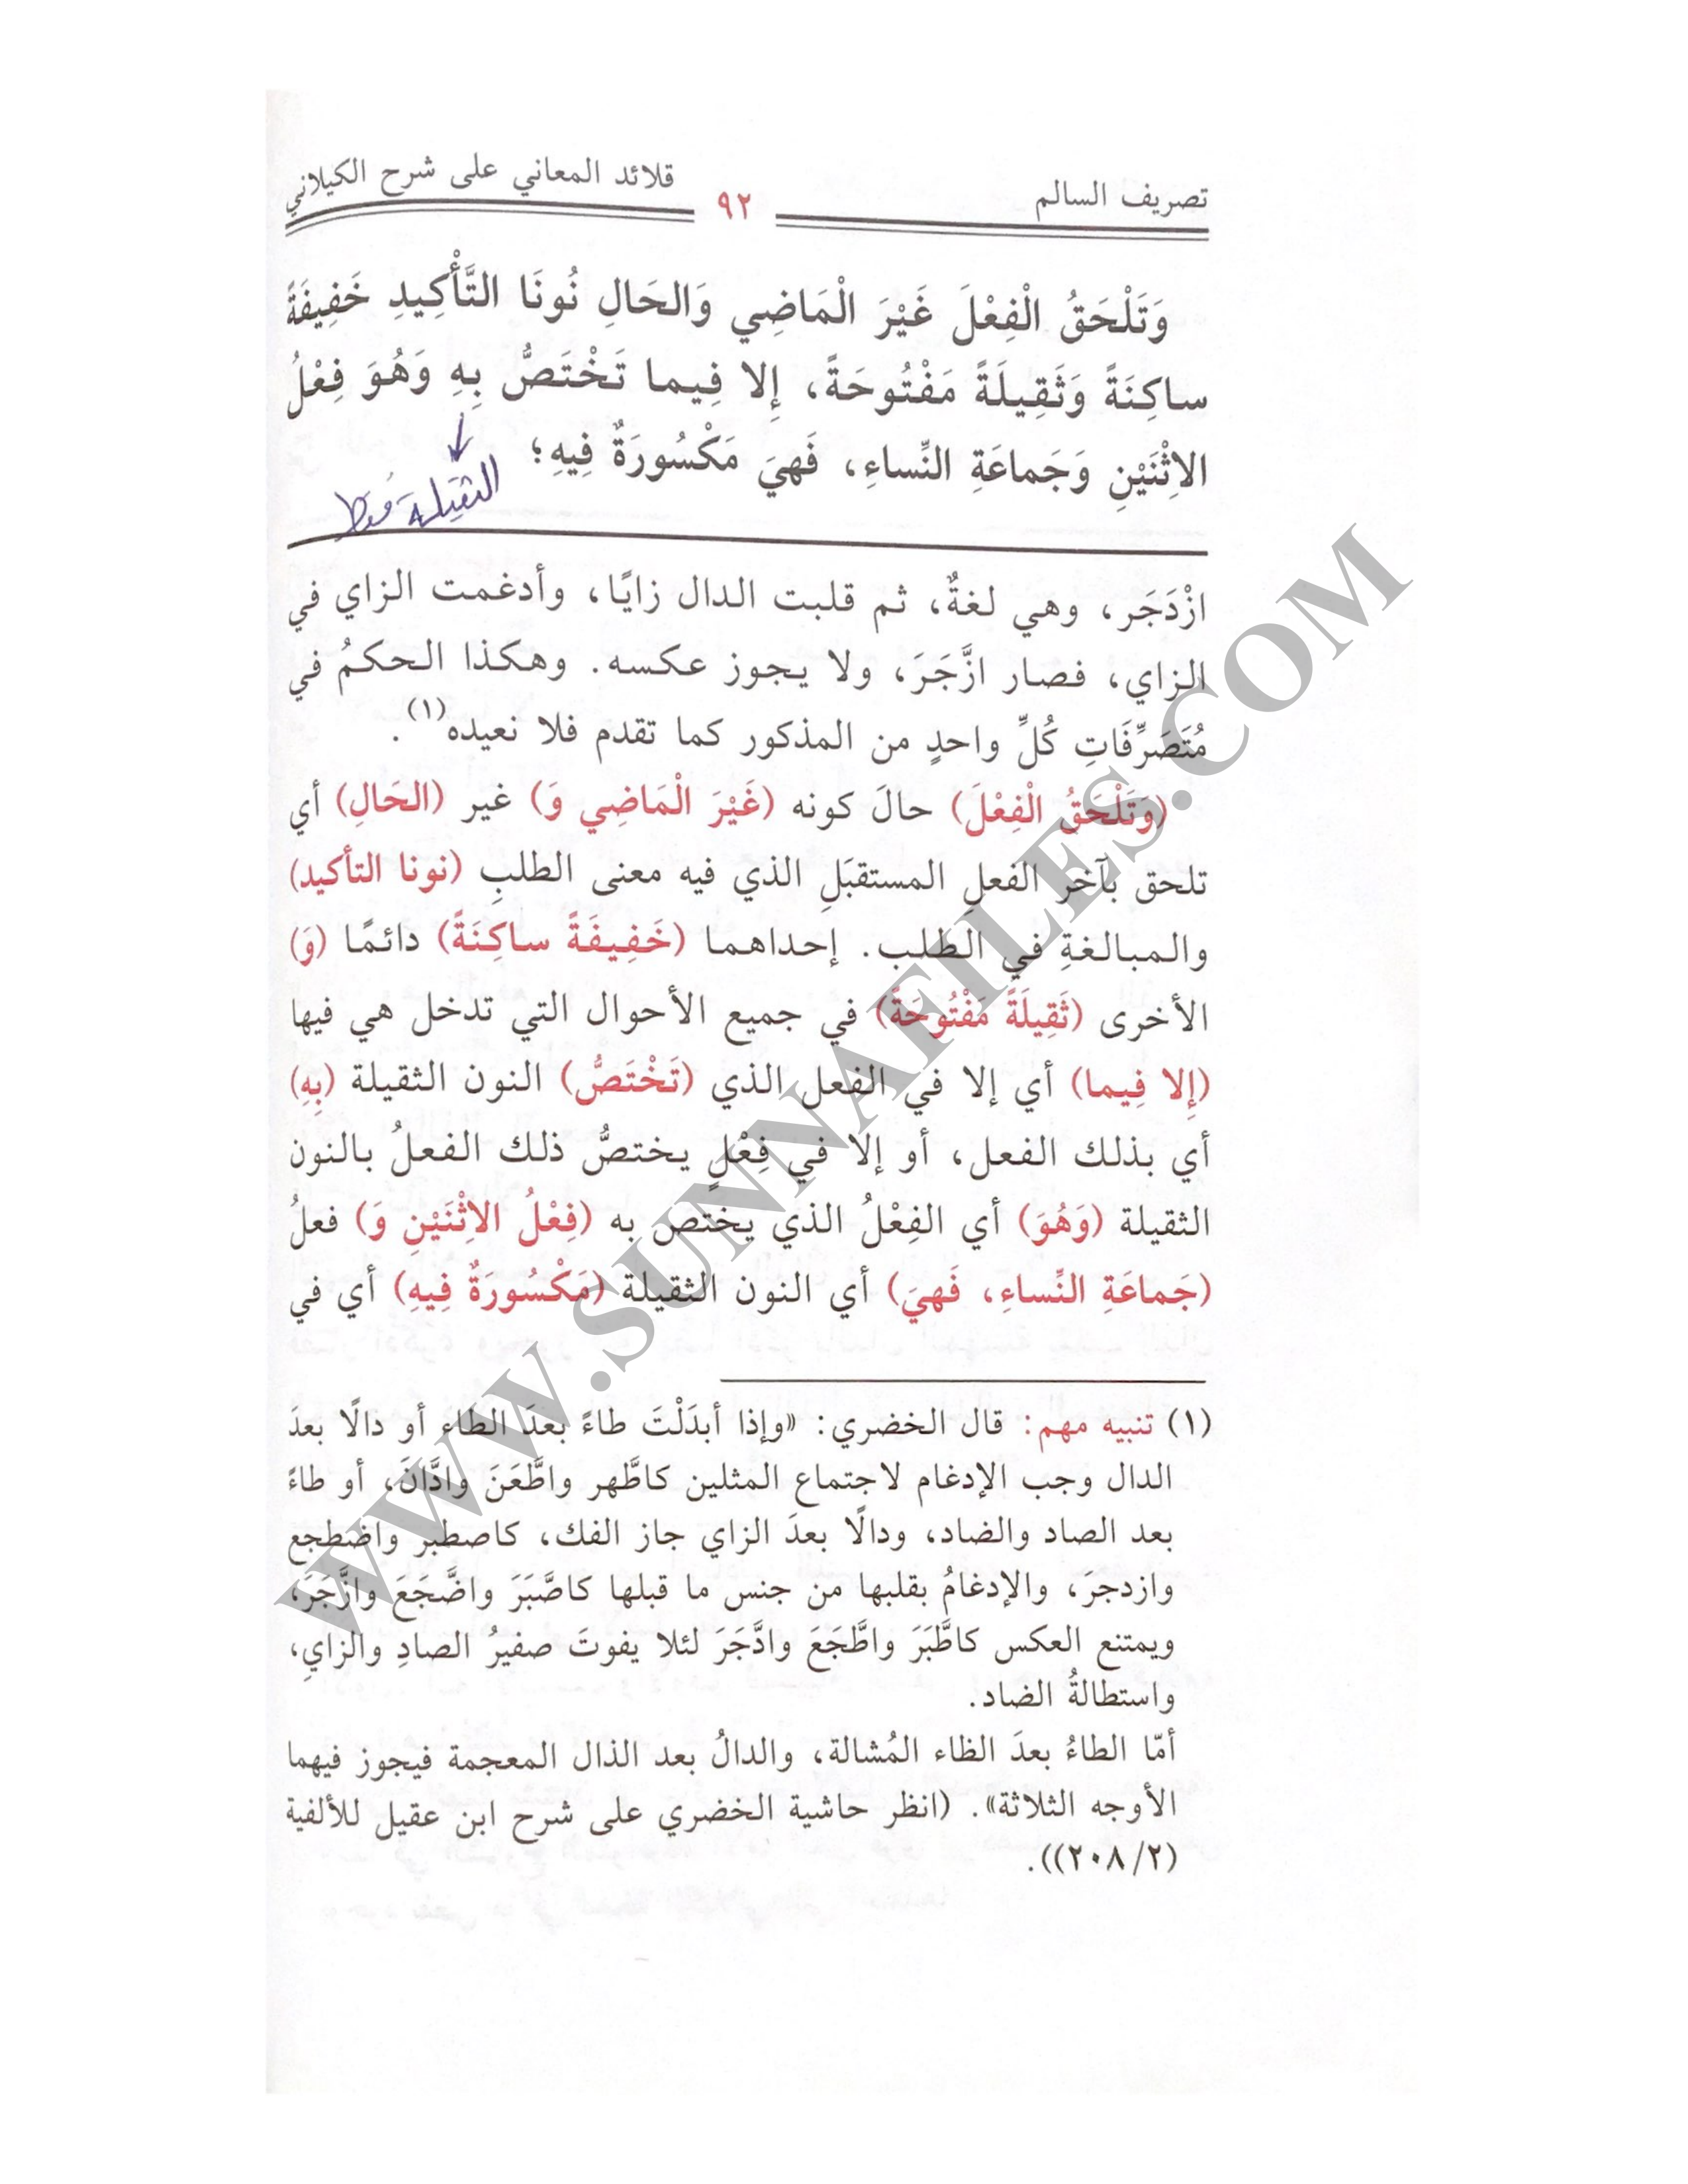 تصريف السالم ٩٢ قلائد المعاني على شرح الكيلاني
وَتَلْحَقُ الْفِعْلَ غَيْرَ الْمَاضِي وَالحَالِ نُونَا التَّأْكِيدِ خَفِيفَةً
ساكِنَةً وَثَقِيلَةً مَفْتُوحَةً، إِلا فِيما تَخْتَصُّ بِهِ وَهُوَ فِعْلُ
الاِثْنَيْنِ وَجَماعَةِ النِّساءِ، فَهيَ مَكْسُورَةٌ فِيهِ؛
الثقيلة فقط
ازْدَجَر، وهي لغةٌ، ثم قلبت الدال زايًا، وأدغمت الزاي في
الزاي، فصار ازَّجَرَ، ولا يجوز عكسه. وهكذا الحكمُ في
مُتَصَرِّفَاتِ كُلِّ واحدٍ من المذكور كما تقدم فلا نعيده(١).
(وَتَلْحَقُ الْفِعْلَ) حالَ كونه (غَيْرَ الْمَاضِي وَ) غير (الحَالِ) أي
تلحق بآخر الفعلِ المستقبَلِ الذي فيه معنى الطلبِ (نونا التأكيد)
والمبالغةِ في الطلب. إحداهما (خَفِيفَةً ساكِنَةً) دائمًا (وَ)
الأخرى (ثَقِيلَةً مَفْتُوحَةً) في جميع الأحوال التي تدخل هي فيها
(إِلا فِيما) أي إلا في الفعل الذي (تَخْتَصُّ) النون الثقيلة (بِهِ)
أي بذلك الفعل، أو إلا في فِعْلٍ يختصُّ ذلك الفعلُ بالنون
الثقيلة (وَهُوَ) أي الفِعْلُ الذي يختص به (فِعْلُ الاِثْنَيْنِ وَ) فعلُ
(جَماعَةِ النِّساءِ، فَهيَ) أي النون الثقيلة (مَكْسُورَةٌ فِيهِ) أي في
(١) تنبيه مهم: قال الخضري: «وإذا أبدَلْتَ طاءً بعدَ الطاء أو دالًا بعدَ
الدال وجب الإدغام لاجتماع المثلين كاطَّهر واطَّعَنَ وادَّانَ، أو طاءً
بعد الصاد والضاد، ودالًا بعدَ الزاي جاز الفك، كاصطبر واضطجع
وازدجرَ، والإدغامُ بقلبها من جنس ما قبلها كاصَّبَرَ واضَّجَعَ وازَّجَرَ،
ويمتنع العكس كاطَّبَرَ واطَّجَعَ وادَّجَرَ لئلا يفوتَ صفيرُ الصادِ والزايِ،
واستطالةُ الضاد.
أمّا الطاءُ بعدَ الظاء المُشالة، والدالُ بعد الذال المعجمة فيجوز فيهما
الأوجه الثلاثة». (انظر حاشية الخضري على شرح ابن عقيل للألفية
(٢٠٨/٢)).
WWW.SUNNAFILES.COM